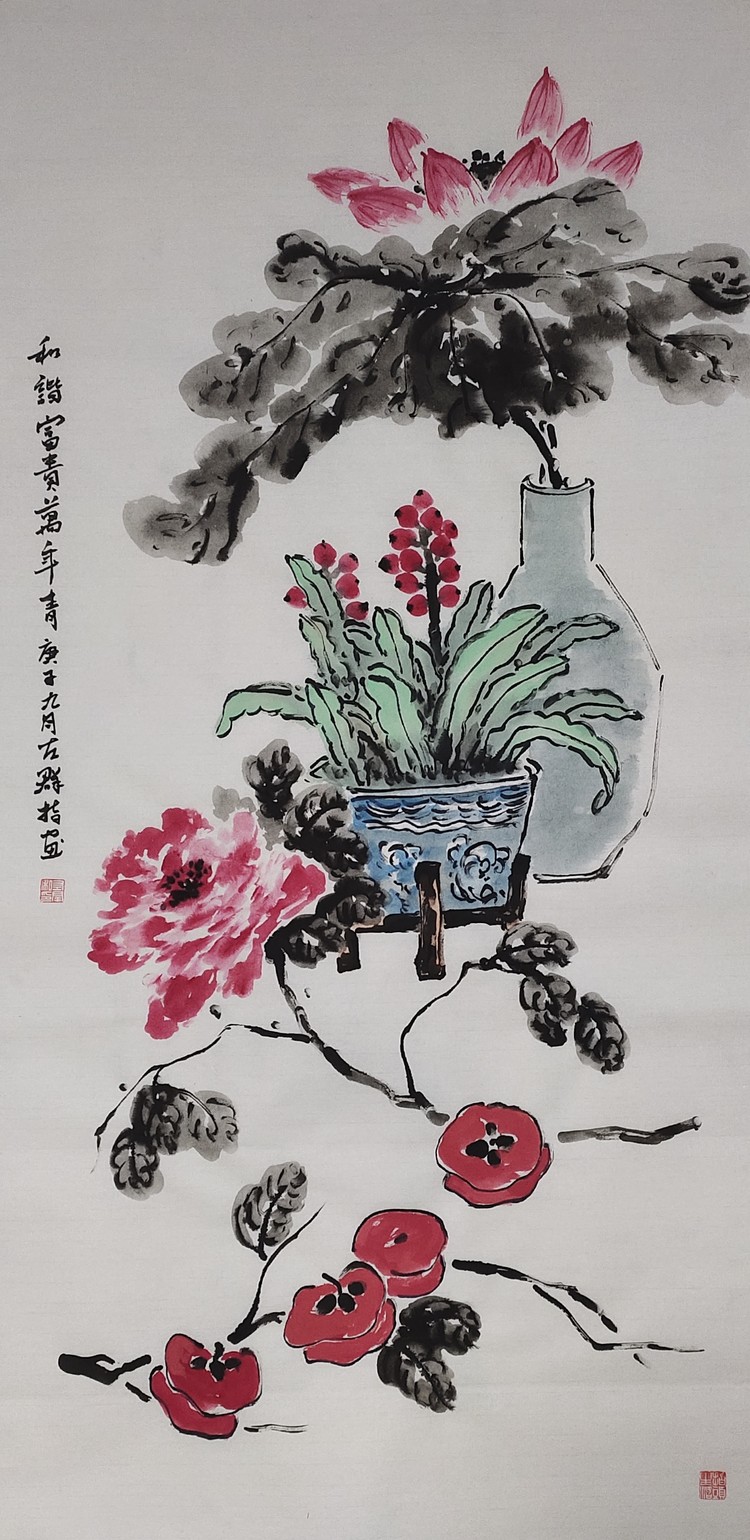 和諧富貴萬年青 庚子九月左群指画